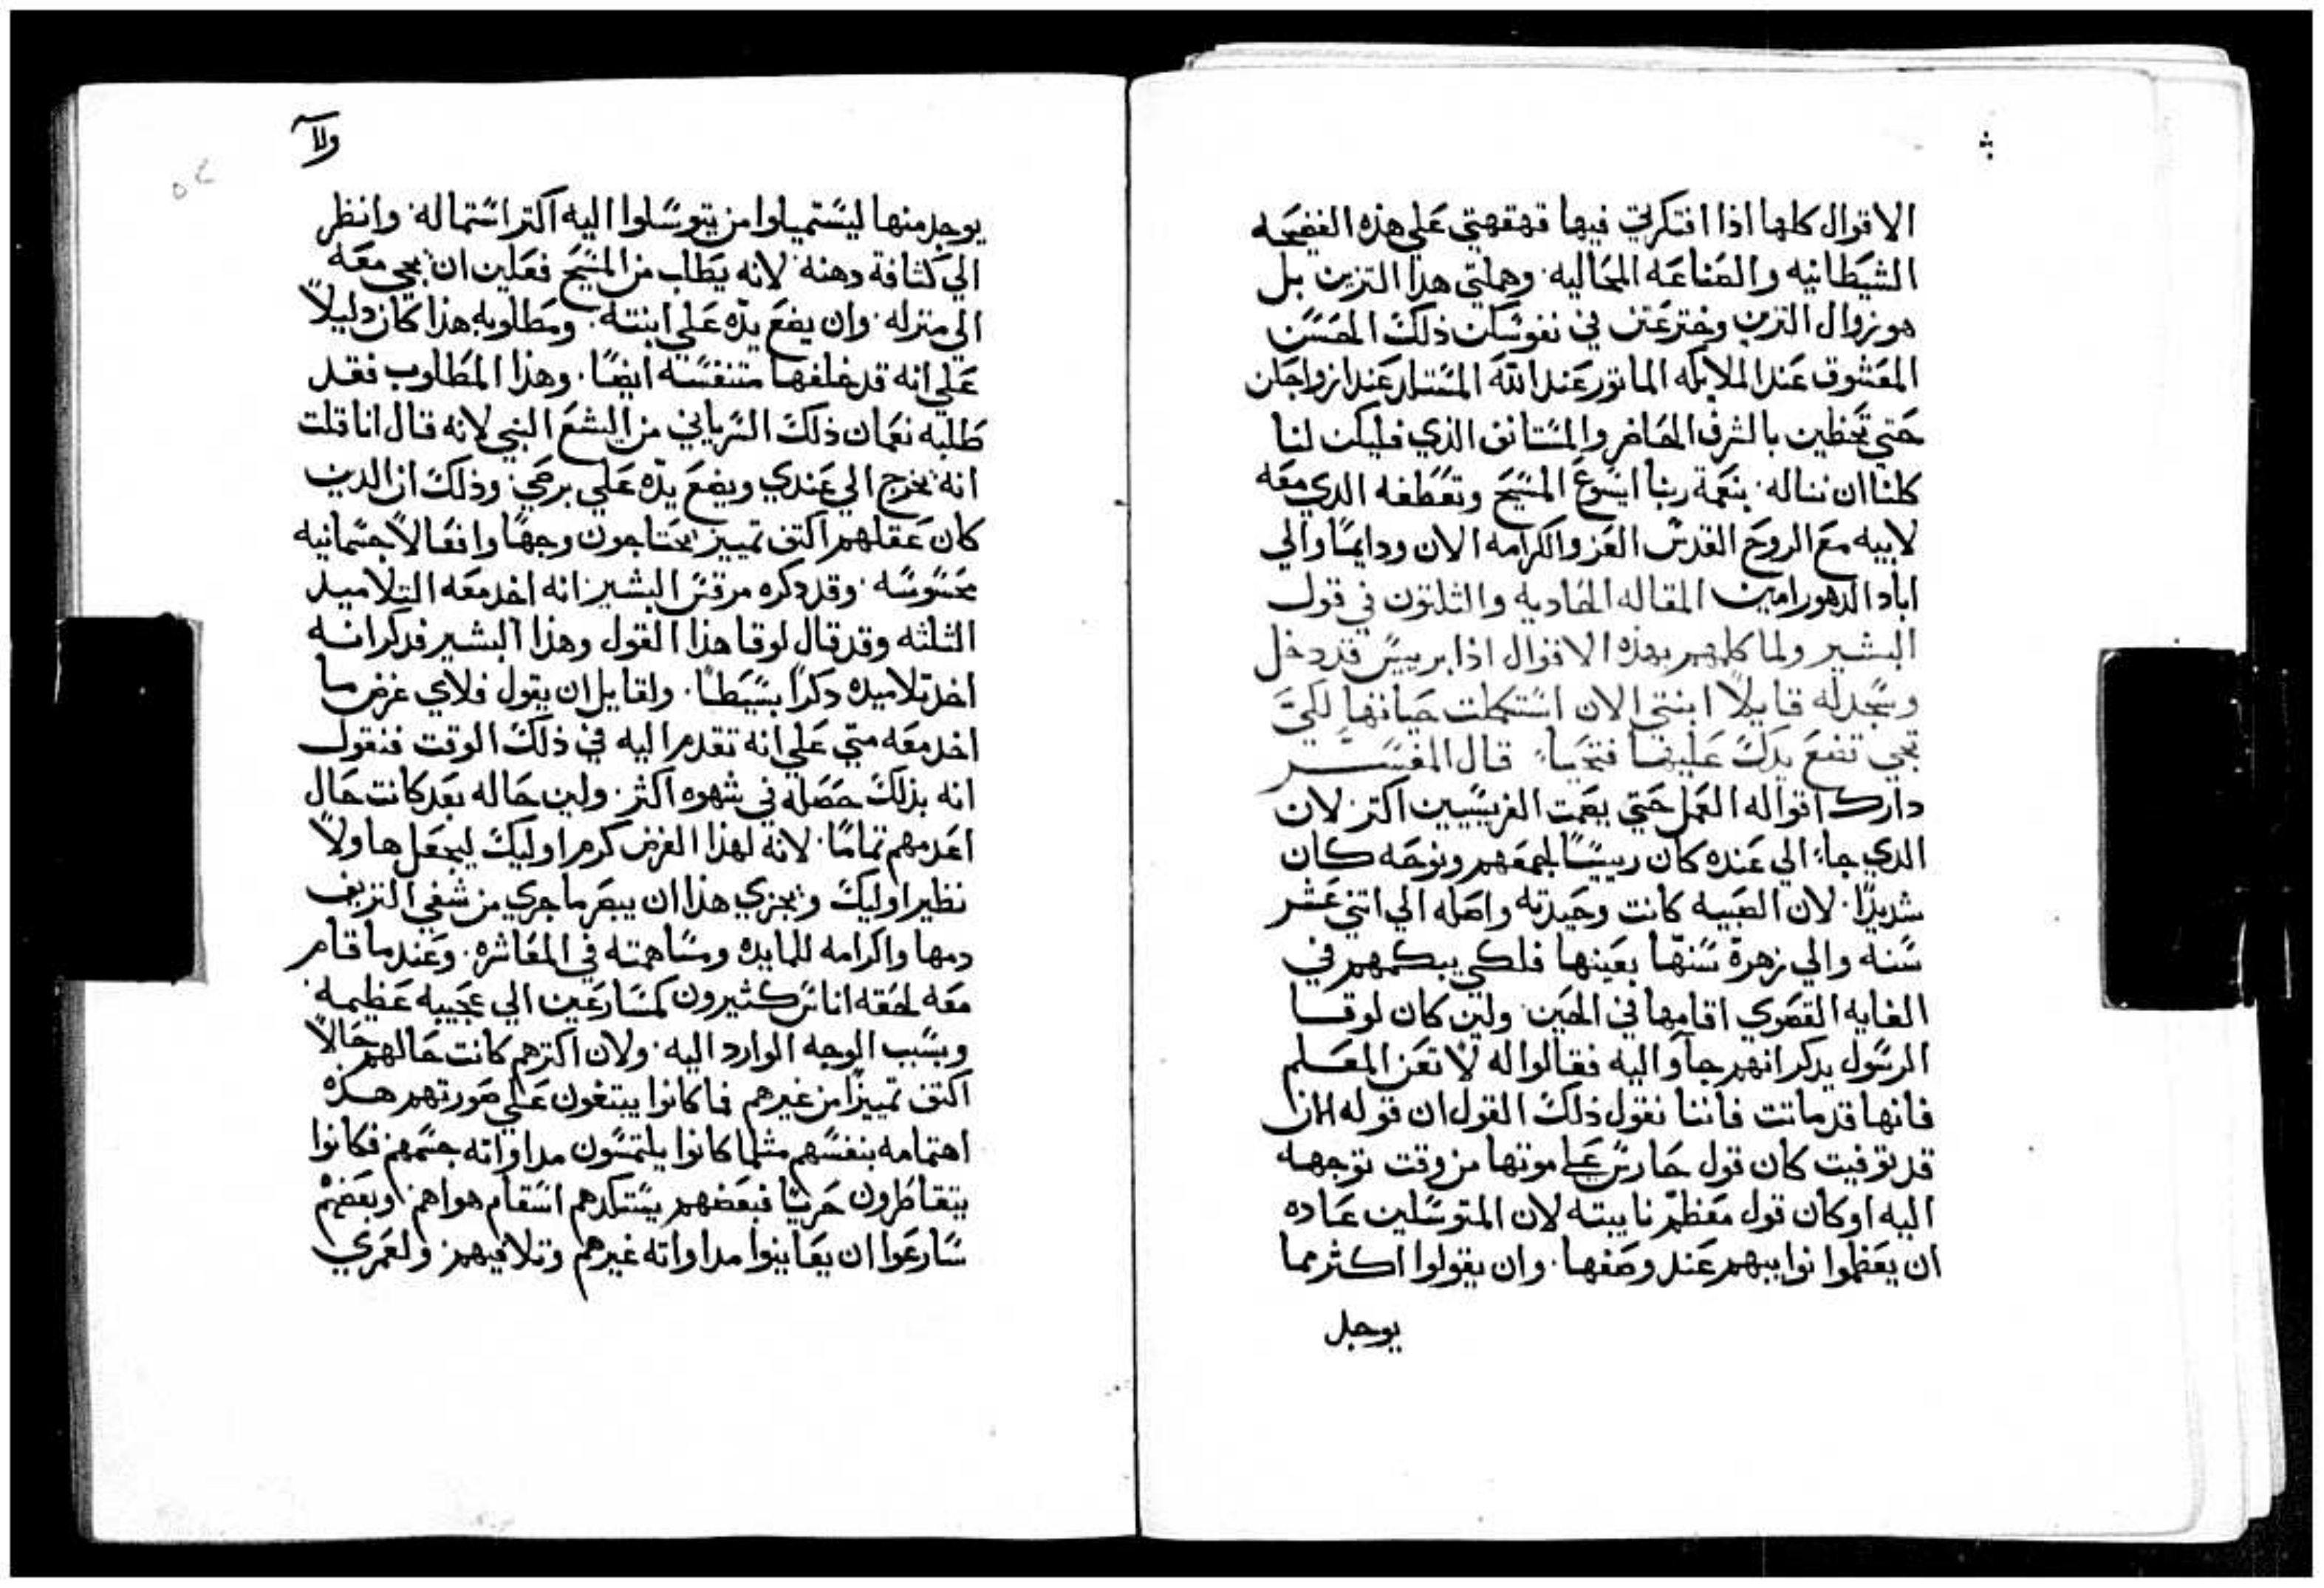 الاقوال كلها اذا افتكرتي فيها قهقهتي علي هذه الفضيحه
الشيطانيه والصناعه المحاليه وهملتي هدا التزين بل
هو زوال التزين وخترعتن في نفوسكن ذلك الحسن
المعشوق عند الملايكه الماتور عند الله المستلد عند ازواجكن
حتي تحظين بالشرف الحاضر والمستانف الذي فليكن لنا
كلنا ان نناله بنعمة ربنا ايسوع المسيح وتعطفه الدي معه
لابيه مع الروح القدس العز والكرامه الان ودايما والي
اباد الدهور امين المقاله الحاديه والثلتون في قول
البشير ولما كلمهم بهذه الاقوال اذا برييس قد دخل
وسجد له قايلا ابنتي الان استكملت حياتها لكن
تجي تضع يدك عليها فتحيا قال المفسر
دارك اقواله العمل حتي يعمت الفريسيين اكتر لان
الدي جاء الي عنده كان رييسا لجمعهم ونوحه كان
شديدا لان الصبيه كانت وحيدته واصله الي اتني عشر
سنه والي زهرة سنها بعينها فلكي يبكمهم في
الغايه القصوي اقامها في الحين ولين كان لوقا
الرسول يدكر انهم جاوا اليه فقالوا له لا تعن المعلم
فانها قد ماتت فاننا نقول ذلك القول ان قوله الان
قد توفيت كان قول حادس علي موتها من وقت توجهه
اليه او كان قول معظم نايبته لان المتوسلين عاده
ان يعظموا نوايبهم عند وصفها وان يقولوا اكثر مما
يوجد
ولا
يوجد منها ليستميلوا من يتوسلوا اليه اكتر استماله وانظر
الي كثافة دهنه لانه يطلب من المسيح فعلين ان يجي معه
الي منزله وان يضع يده علي ابنته ومطلوبه هذا كان دليلا
علي انه قد خلفها متنفسه ايضا وهذا المطلوب فقد
طلبه نعمان ذلك السرياني من اليشع النبي لانه قال انا قلت
انه يخرج الي عندي ويضع يده علي برصي وذلك ان الدين
كان عقلهم اكتف تمييز يحتاجون وجها وافعالا جسمانيه
محسوسه وقد دكره مرقس البشير انه اخد معه التلاميد
الثلثه وقد قال لوقا هذا القول وهذا البشير فدكر انه
اخد تلاميده دكرا بسيطا ولقايل ان يقول فلاي غرض ما
اخد معه متي علي انه تقدم اليه في ذلك الوقت فنقول
انه بذلك حصله في شهوه اكثر ولين حاله بعد كانت حال
اعدمهم تماما لانه لهذا الغرض كرم اوليك ليجعل هاولا
نظير اوليك ويجزي هذا ان يبصر ما جري من شفي النزيف
دمها واكرامه للمايده ومساهمته في المعاشره وعندما قام
معه لحقه اناس كثيرون كمسارعين الي عجيبه عظيمه
وبسبب الوجه الوارد اليه ولان اكترهم كانت حالهم حالا
اكتف تمييزا من غيرهم فما كانوا يبتغون علي صورتهم هده
اهتمامه بنفسهم مثلما كانوا يلتمسون مداواته جسمهم فكانوا
يتقاطرون حريا فبعضهم يستكدهم اسقام هواهم وبعضهم
سارعوا ان يعاينوا مداواته غيرهم وتلافيهم ولعمري